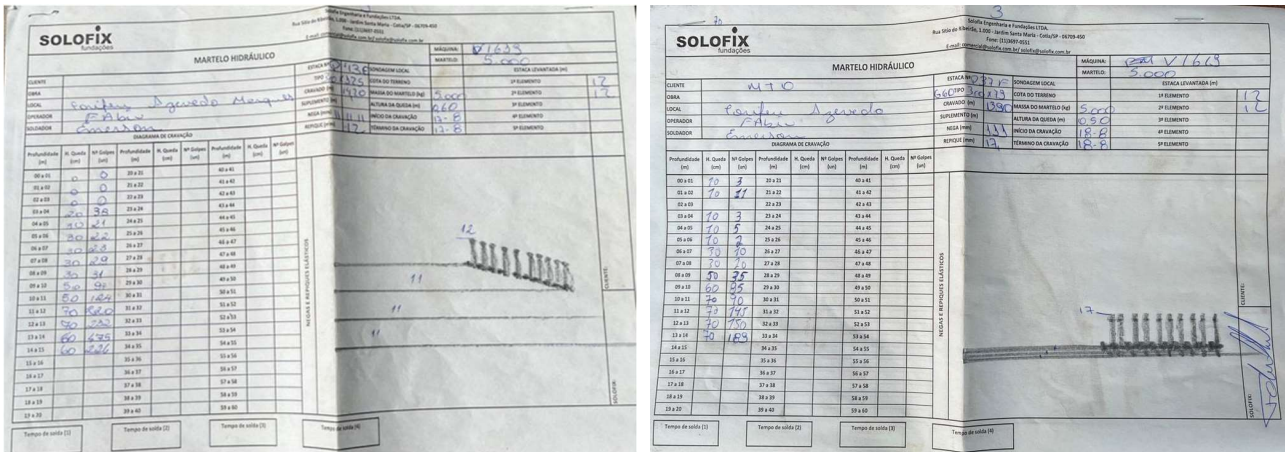 SOLOFIX
fundações
Solofix Engenharia e Fundações LTDA.
Rua Sítio do Ribeirão, 1.000 - Jardim Santa Maria - Cotia/SP - 06709-450
Fone: (11)3697-0551
E-mail: comercial@solofix.com.br/ solofix@solofix.com.br
MARTELO HIDRÁULICO
MÁQUINA:
MARTELO: 5.000
CLIENTE
OBRA
LOCAL
OPERADOR
SOLDADOR Emerson
ESTACA Nº
TIPO
CRAVADO (m)
SUPLEMENTO (m)
NEGA (mm) 11.11.11
REPIQUE (mm) 12
SONDAGEM LOCAL
COTA DO TERRENO
MASSA DO MARTELO (kg) 5.000
ALTURA DA QUEDA (m) 0,60
INÍCIO DA CRAVAÇÃO 12-8
TÉRMINO DA CRAVAÇÃO 12-8
ESTACA LEVANTADA (m)
1º ELEMENTO 12
2º ELEMENTO 12
3º ELEMENTO
4º ELEMENTO
5º ELEMENTO
DIAGRAMA DE CRAVAÇÃO
Profundidade (m) H. Queda (cm) Nº Golpes (un) Profundidade (m) H. Queda (cm) Nº Golpes (un) Profundidade (m) H. Queda (cm) Nº Golpes (un)
00 a 01 0 0 20 a 21 40 a 41
01 a 02 0 0 21 a 22 41 a 42
02 a 03 0 0 22 a 23 42 a 43
03 a 04 20 38 23 a 24 43 a 44
04 a 05 30 21 24 a 25 44 a 45
05 a 06 30 22 25 a 26 45 a 46
06 a 07 30 23 26 a 27 46 a 47
07 a 08 30 29 27 a 28 47 a 48
08 a 09 30 31 28 a 29 48 a 49
09 a 10 50 29 a 30 49 a 50
10 a 11 50 30 a 31 50 a 51
11 a 12 70 31 a 32 51 a 52
12 a 13 70 232 32 a 33 52 a 53
13 a 14 60 475 33 a 34 53 a 54
14 a 15 60 34 a 35 54 a 55
15 a 16 35 a 36 55 a 56
16 a 17 36 a 37 56 a 57
17 a 18 37 a 38 57 a 58
18 a 19 38 a 39 58 a 59
19 a 20 39 a 40 59 a 60
NEGAS E REPIQUES ELÁSTICOS
12
11
11
11
CLIENTE:
SOLOFIX:
Tempo de solda (1) Tempo de solda (2) Tempo de solda (3) Tempo de solda (4)
3
70
SOLOFIX
fundações
Solofix Engenharia e Fundações LTDA.
Rua Sítio do Ribeirão, 1.000 - Jardim Santa Maria - Cotia/SP - 06709-450
Fone: (11)3697-0551
E-mail: comercial@solofix.com.br/ solofix@solofix.com.br
MARTELO HIDRÁULICO
MÁQUINA: V1669
MARTELO: 5.000
CLIENTE MTD
OBRA
LOCAL
OPERADOR
SOLDADOR Emerson
ESTACA Nº
TIPO
CRAVADO (m) 1390
SUPLEMENTO (m)
NEGA (mm) 111
REPIQUE (mm) 17
SONDAGEM LOCAL
COTA DO TERRENO
MASSA DO MARTELO (kg) 5.000
ALTURA DA QUEDA (m) 0,50
INÍCIO DA CRAVAÇÃO 18-8
TÉRMINO DA CRAVAÇÃO 18-8
ESTACA LEVANTADA (m)
1º ELEMENTO 12
2º ELEMENTO 12
3º ELEMENTO
4º ELEMENTO
5º ELEMENTO
DIAGRAMA DE CRAVAÇÃO
Profundidade (m) H. Queda (cm) Nº Golpes (un) Profundidade (m) H. Queda (cm) Nº Golpes (un) Profundidade (m) H. Queda (cm) Nº Golpes (un)
00 a 01 10 3 20 a 21 40 a 41
01 a 02 10 11 21 a 22 41 a 42
02 a 03 22 a 23 42 a 43
03 a 04 10 3 23 a 24 43 a 44
04 a 05 10 5 24 a 25 44 a 45
05 a 06 10 2 25 a 26 45 a 46
06 a 07 30 10 26 a 27 46 a 47
07 a 08 30 20 27 a 28 47 a 48
08 a 09 50 35 28 a 29 48 a 49
09 a 10 60 85 29 a 30 49 a 50
10 a 11 70 90 30 a 31 50 a 51
11 a 12 70 145 31 a 32 51 a 52
12 a 13 70 150 32 a 33 52 a 53
13 a 14 70 189 33 a 34 53 a 54
14 a 15 34 a 35 54 a 55
15 a 16 35 a 36 55 a 56
16 a 17 36 a 37 56 a 57
17 a 18 37 a 38 57 a 58
18 a 19 38 a 39 58 a 59
19 a 20 39 a 40 59 a 60
NEGAS E REPIQUES ELÁSTICOS
17
CLIENTE:
SOLOFIX:
Tempo de solda (1) Tempo de solda (2) Tempo de solda (3) Tempo de solda (4)